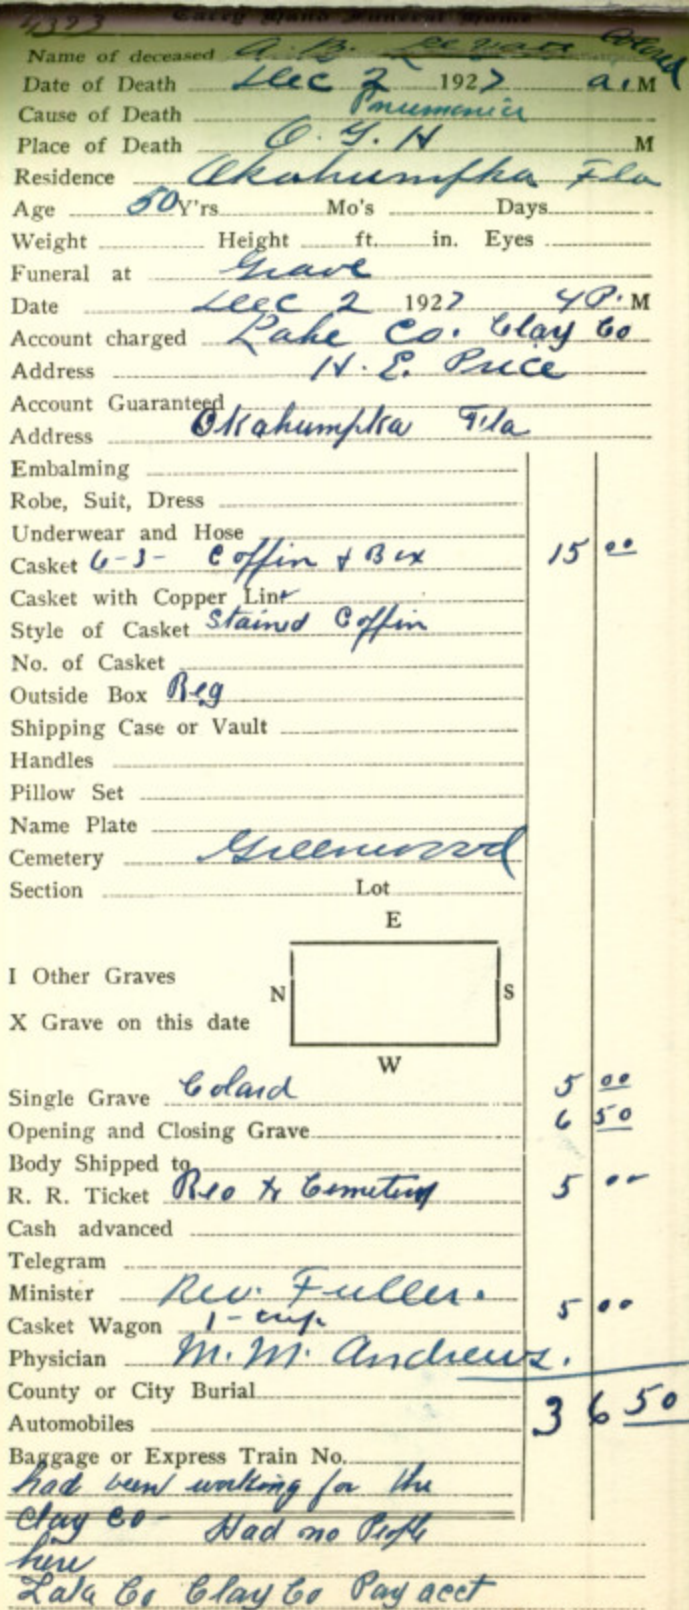 4323 Carey Hand Funeral Home
Name of deceased A. B. Colard
Date of Death Dec 2 1927 a. M
Cause of Death Pnumonia
Place of Death O. G. H M
Residence Okahumpka Fla
Age 50 Y'rs Mo's Days
Weight Height ft. in. Eyes
Funeral at Grave
Date Dec 2 1927 4 P. M
Account charged Lake Co. Clay Co
Address H. E. Price
Account Guaranteed
Address Okahumpka Fla
Embalming
Robe, Suit, Dress
Underwear and Hose
Casket 6-3- Coffin + Box 15 00
Casket with Copper Line
Style of Casket Stained Coffin
No. of Casket
Outside Box Reg
Shipping Case or Vault
Handles
Pillow Set
Name Plate
Cemetery Greenwood
Section Lot
E
I Other Graves
N S
X Grave on this date
W
Single Grave Colard 5 00
Opening and Closing Grave 6 50
Body Shipped to
R. R. Ticket Reo to Cemetery 5 00
Cash advanced
Telegram
Minister Rev. Fuller.
Casket Wagon 1- 5 00
Physician M. M. Andrews.
County or City Burial 36 50
Automobiles
Baggage or Express Train No.
had been working for the
Clay Co- Had no People
here
Lake Co Clay Co Pay acct